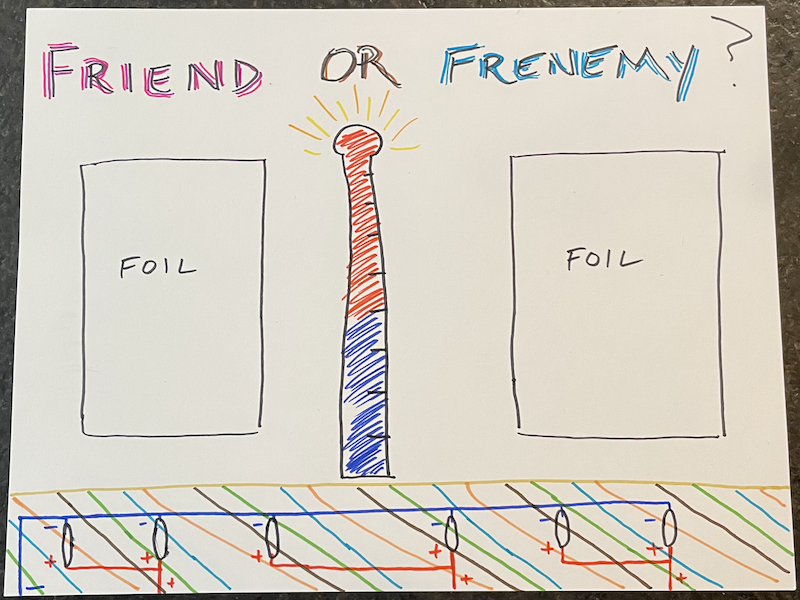 FRIEND OR FRENEMY?
FOIL FOIL
- - - - - -
+ + + + + +
- + + +